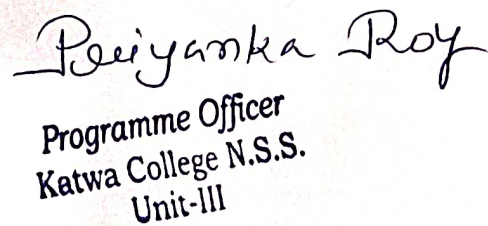 Priyanka Roy
Programme Officer
Katwa College N.S.S.
Unit-III